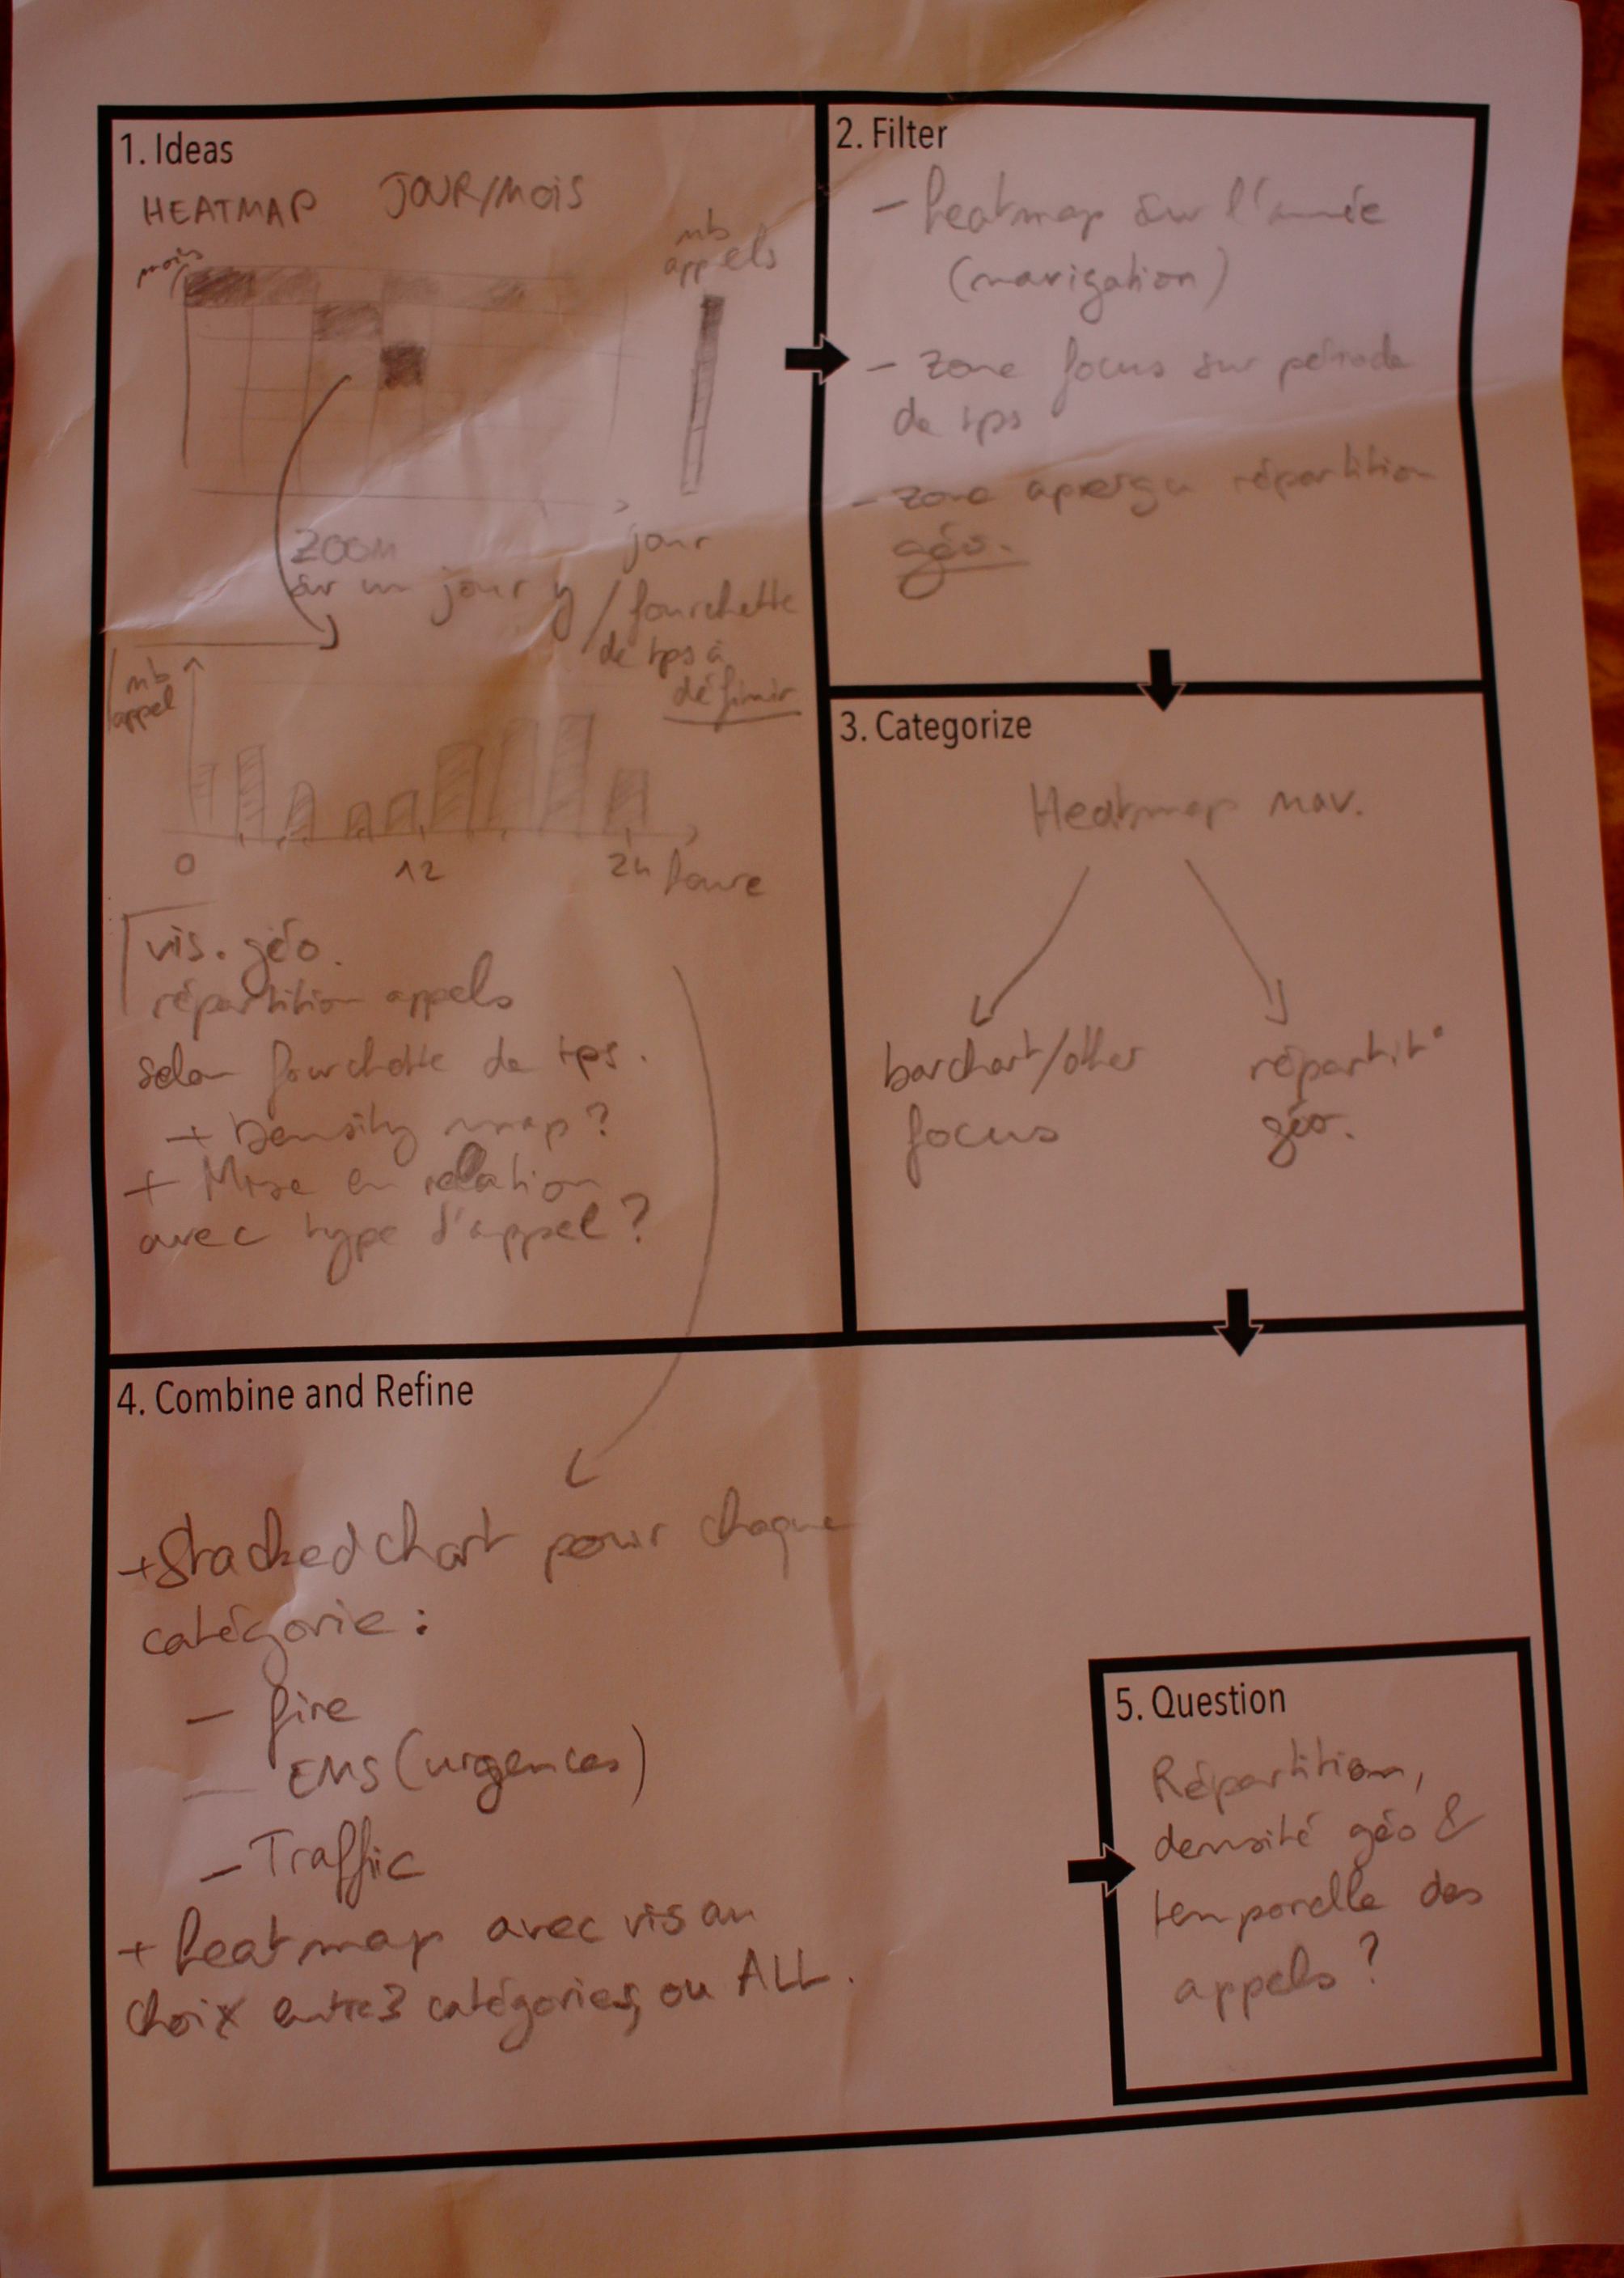 1. Ideas
HEATMAP JOUR/MOIS
mois
nb
appels
jour
ZOOM
sur un jour / fourchette
de tps à
définir
nb
appel
0 12 24 heure
vis. géo.
répartition appels
selon fourchette de tps.
+ Density map ?
+ Mise en relation
avec type d'appel ?
2. Filter
- heatmap sur l'année
(navigation)
- zone focus sur période
de tps
- zone aperçu répartition
géo.
3. Categorize
Heatmap nav.
barchart/other
focus
répartit°
géo.
4. Combine and Refine
+ Stackedchart pour chaque
catégorie :
- fire
- EMS (urgences)
- Traffic
+ heatmap avec vis au
choix entre 3 catégories, ou ALL.
5. Question
Répartition,
densité géo &
temporelle des
appels ?